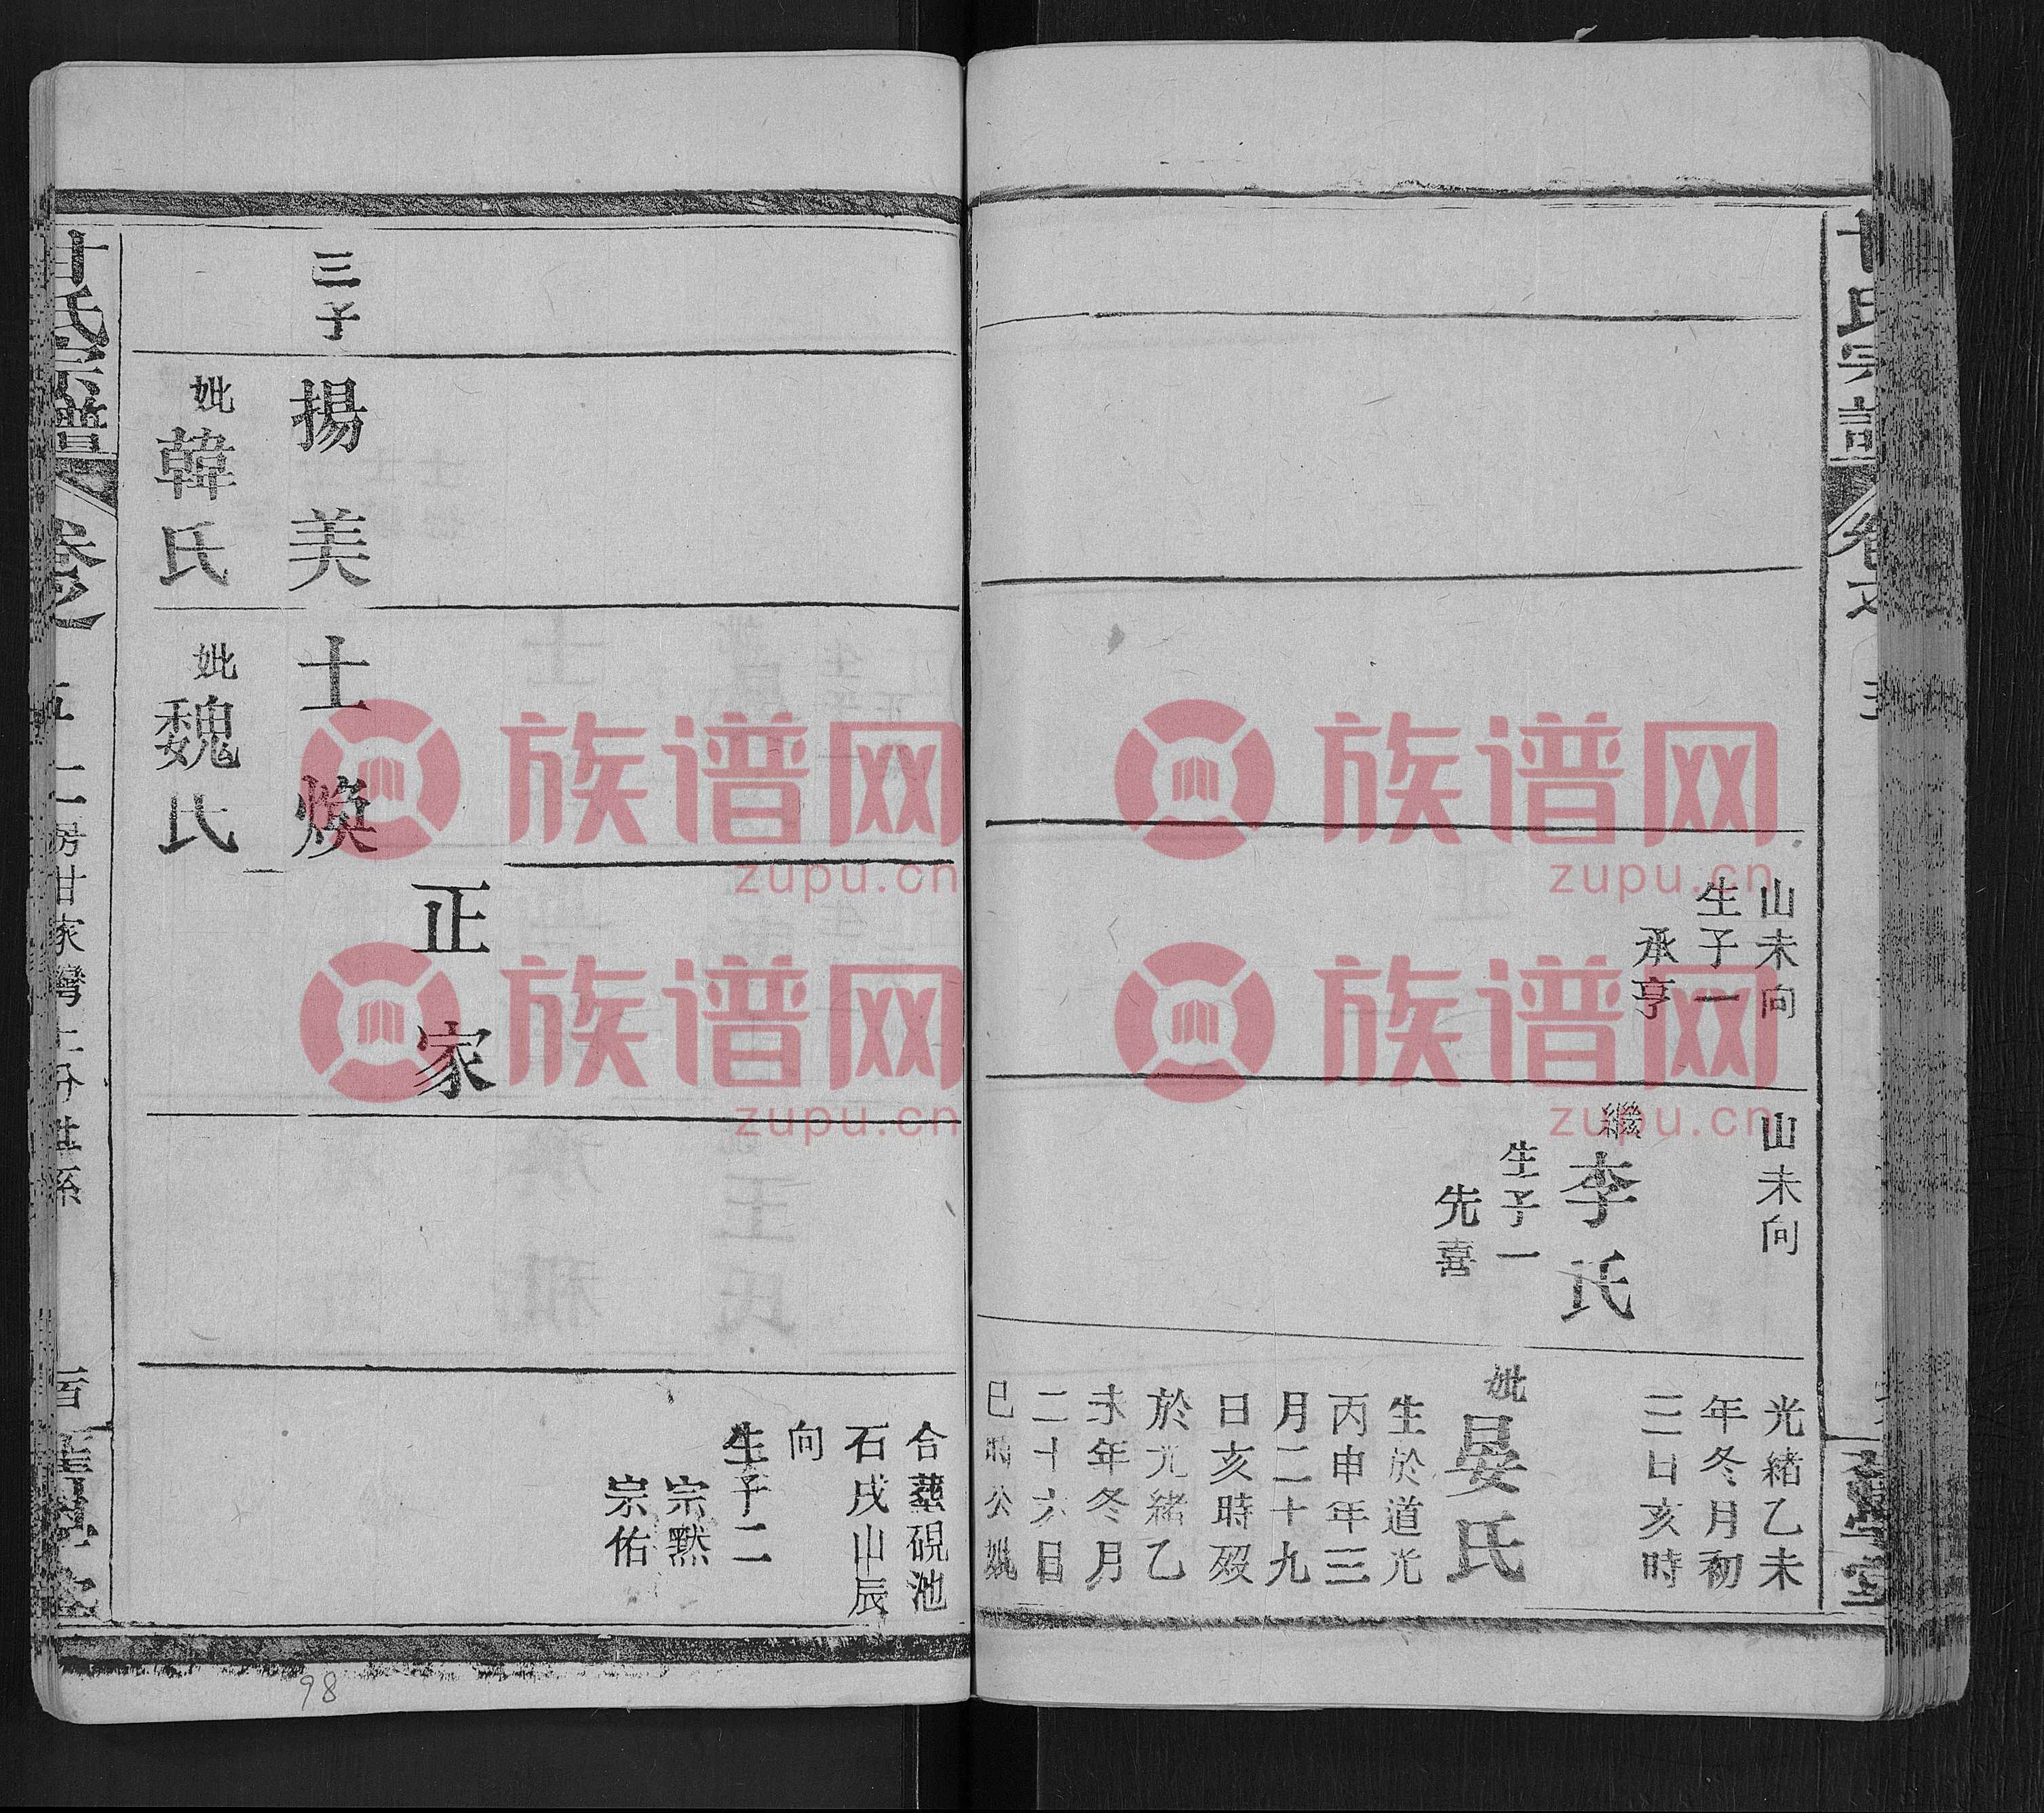 山未向
生子一
承亨
山未向
繼李氏
生子一
先喜
光緒乙未
年冬月初
三日亥時
妣晏氏
生於道光
丙申年三
月二十九
日亥時殁
於光緒乙
未年冬月
二十六日
巳時公妣
合葬硯池
石戌山辰
向
生子二
宗黙
宗佑
正家
三子
揚美
士煥
妣韓氏
妣魏氏
甘氏宗譜
卷之五
二房甘家灣
98
族谱网
zupu.cn
族谱网
zupu.cn
族谱网
zupu.cn
族谱网
zupu.cn